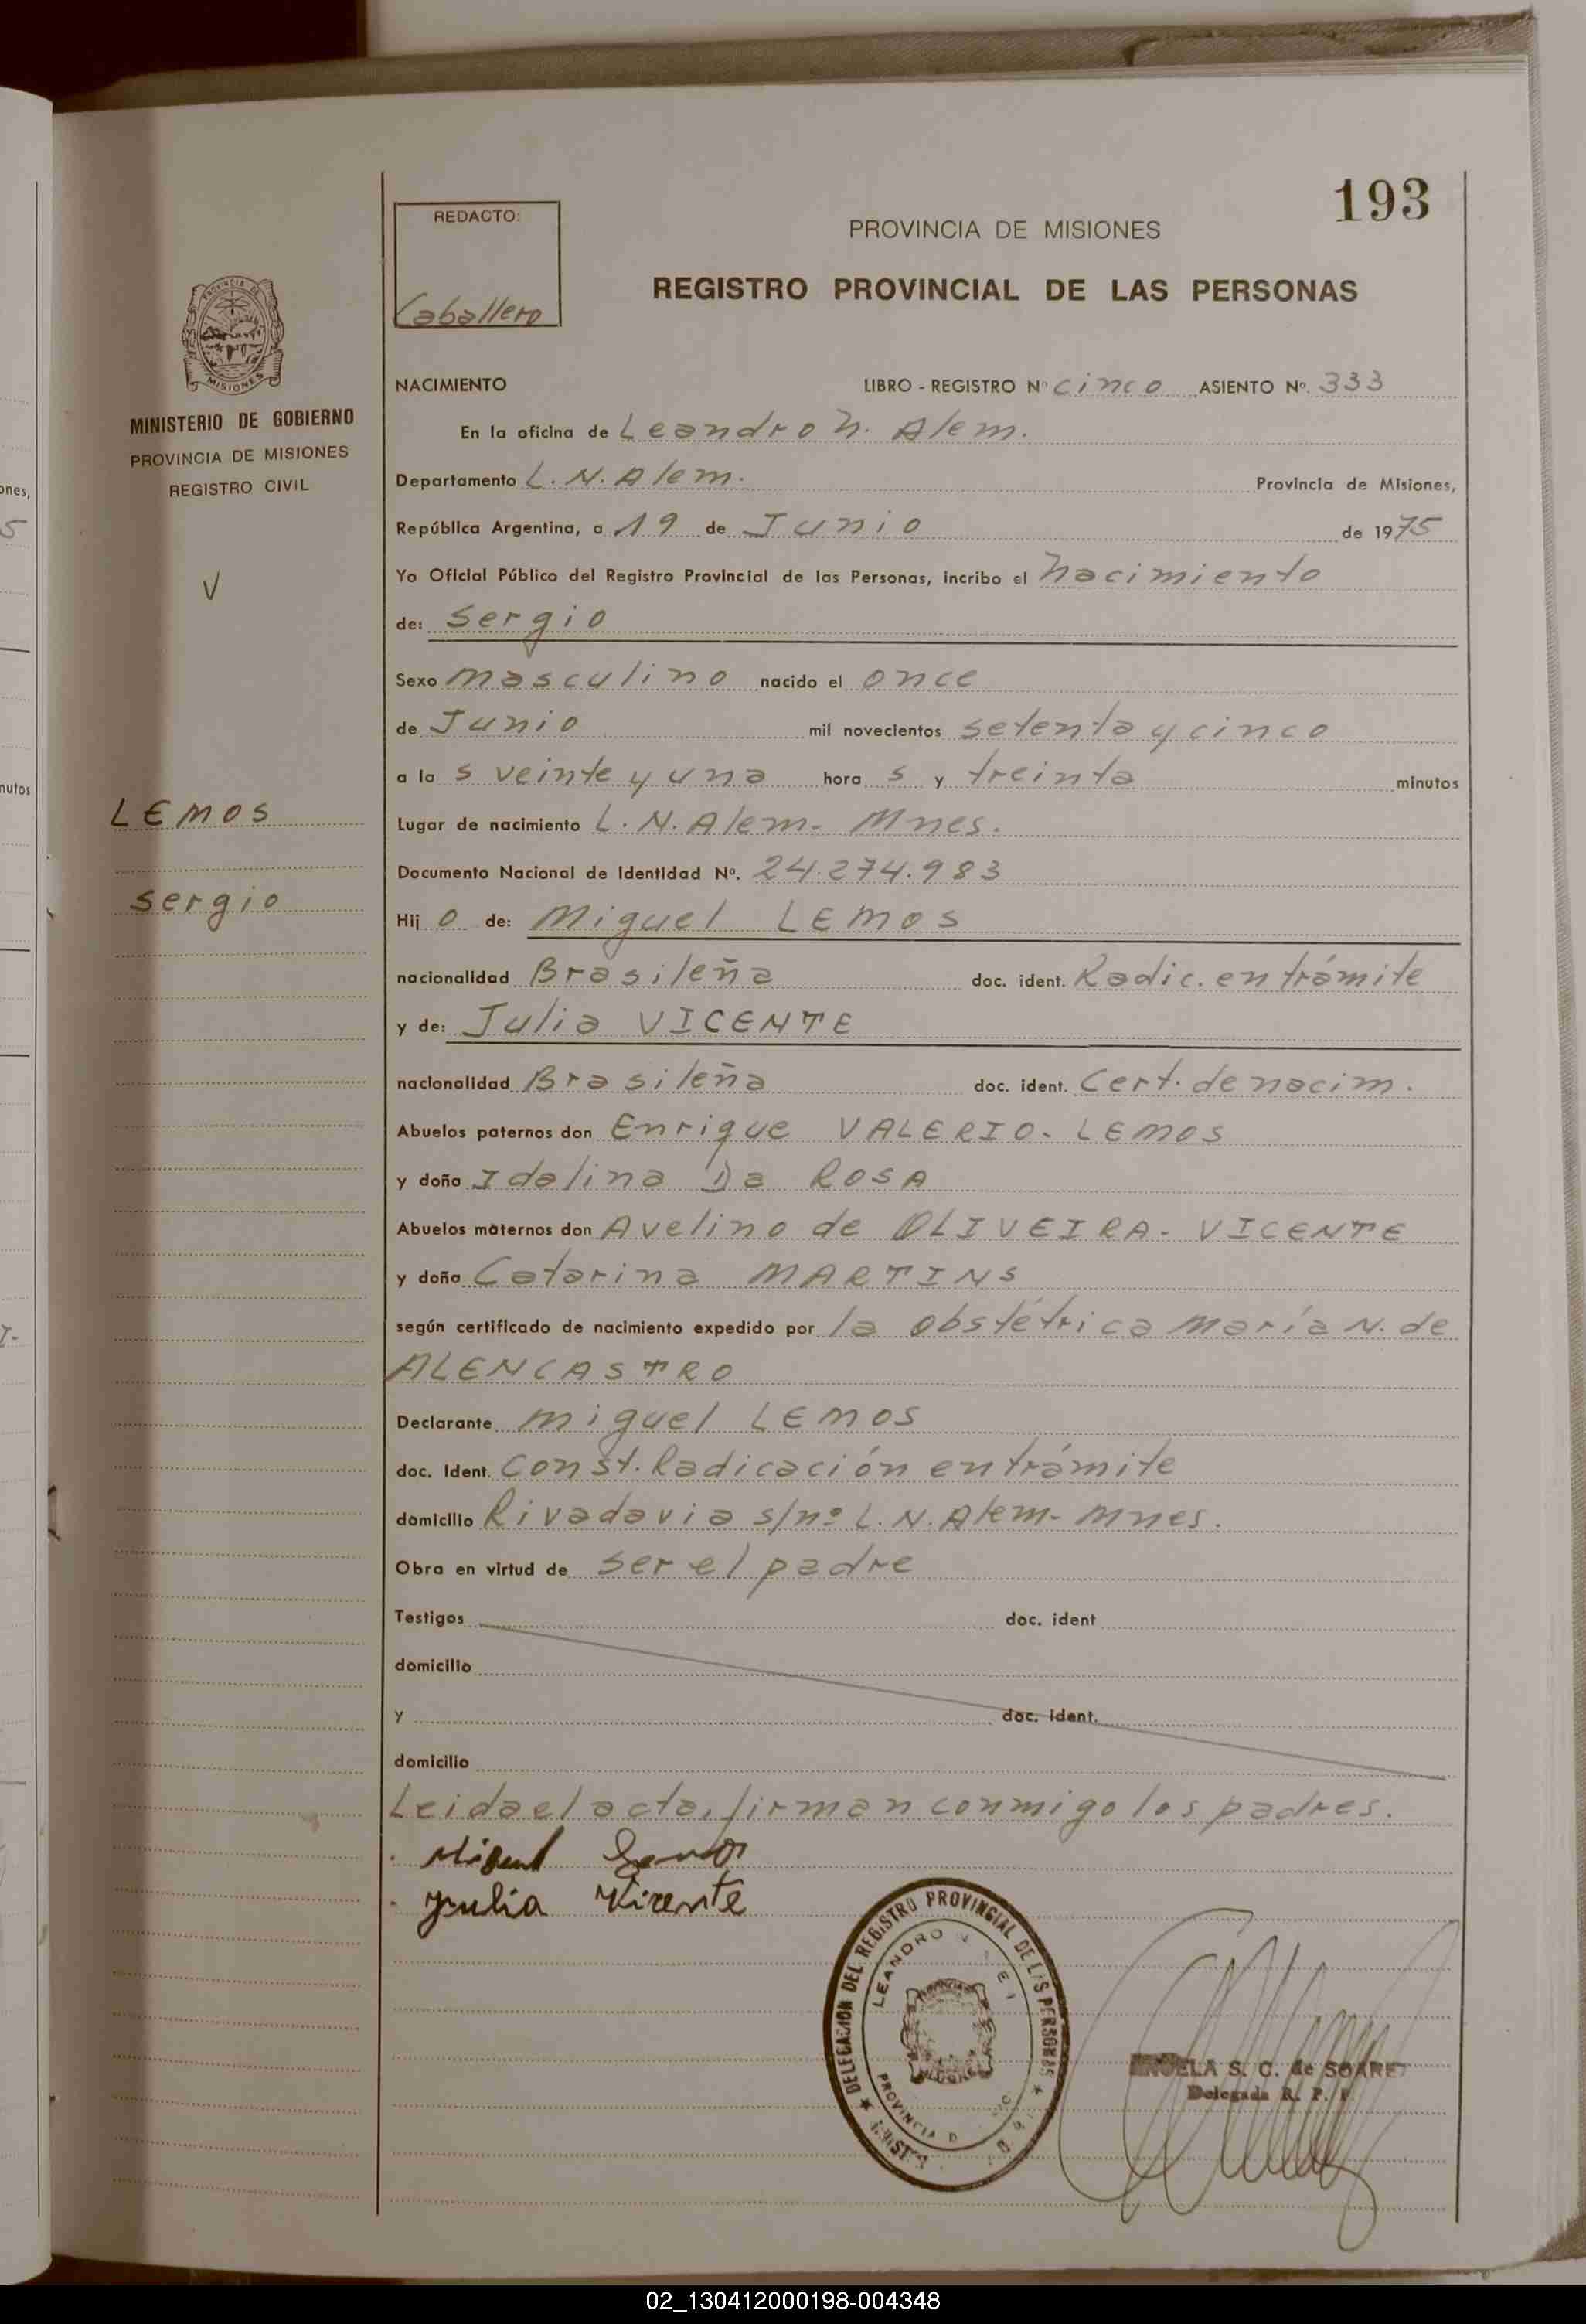 193
REDACTO:
Caballero
PROVINCIA DE MISIONES
REGISTRO PROVINCIAL DE LAS PERSONAS
PROVINCIA DE
MISIONES
MINISTERIO DE GOBIERNO
PROVINCIA DE MISIONES
REGISTRO CIVIL
V
LEMOS
Sergio
NACIMIENTO LIBRO - REGISTRO Nº cinco ASIENTO Nº. 333
En la oficina de Leandro N. Alem.
Departamento L. N. Alem. Provincia de Misiones,
República Argentina, a 19 de Junio de 1975
Yo Oficial Público del Registro Provincial de las Personas, incribo el nacimiento
de: Sergio
Sexo masculino nacido el once
de Junio mil novecientos setenta y cinco
a la s veinte y una hora s y treinta minutos
Lugar de nacimiento L. N. Alem- Mnes.
Documento Nacional de Identidad Nº. 24.274.983
Hij o de: Miguel LEMOS
nacionalidad Brasileña doc. ident. Radic. en trámite
y de: Julia VICENTE
nacionalidad Brasileña doc. ident. Cert. de nacim.
Abuelos paternos don Enrique VALERIO- LEMOS
y doña Idalina Da ROSA
Abuelos maternos don Avelino de OLIVEIRA- VICENTE
y doña Catarina MARTINS
según certificado de nacimiento expedido por la obstétrica María N. de
ALENCASTRO
Declarante Miguel LEMOS
doc. Ident. Const. Radicación en trámite
domicilio Rivadavia s/nº L. N. Alem- Mnes.
Obra en virtud de ser el padre
Testigos doc. ident
domicilio
y doc. Ident.
domicilio
Leida el acta, firman conmigo los padres.
Miguel Lemos
Julia Vicente
DELEGACION DEL REGISTRO PROVINCIAL DE LAS PERSONAS
LEANDRO N
PROVINCIA D
S. C. de SOARE
Delegada R. P. P.
ones,
5
nutos
02_130412000198-004348